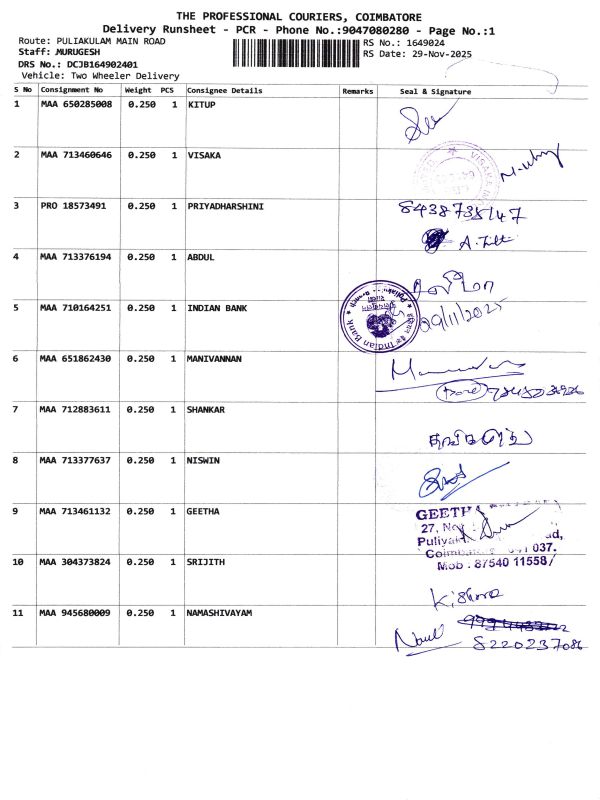 THE PROFESSIONAL COURIERS, COIMBATORE
Delivery Runsheet - PCR - Phone No.:9047080280 - Page No.:1
Route: PULIAKULAM MAIN ROAD
RS No.: 1649024
Staff: MURUGESH
RS Date: 29-Nov-2025
DRS No.: DCJB164902401
Vehicle: Two Wheeler Delivery
S No Consignment No Weight PCS Consignee Details Remarks Seal & Signature
1 MAA 650285008 0.250 1 KITUP
2 MAA 713460646 0.250 1 VISAKA
3 PRO 18573491 0.250 1 PRIYADHARSHINI
8438735147
4 MAA 713376194 0.250 1 ABDUL
5 MAA 710164251 0.250 1 INDIAN BANK
Indian Bank
29/11/2025
6 MAA 651862430 0.250 1 MANIVANNAN
7 MAA 712883611 0.250 1 SHANKAR
8 MAA 713377637 0.250 1 NISWIN
9 MAA 713461132 0.250 1 GEETHA
GEETHA
27,
037.
Mob : 87540 11558/
10 MAA 304373824 0.250 1 SRIJITH
Kishore
11 MAA 945680009 0.250 1 NAMASHIVAYAM
8220237086